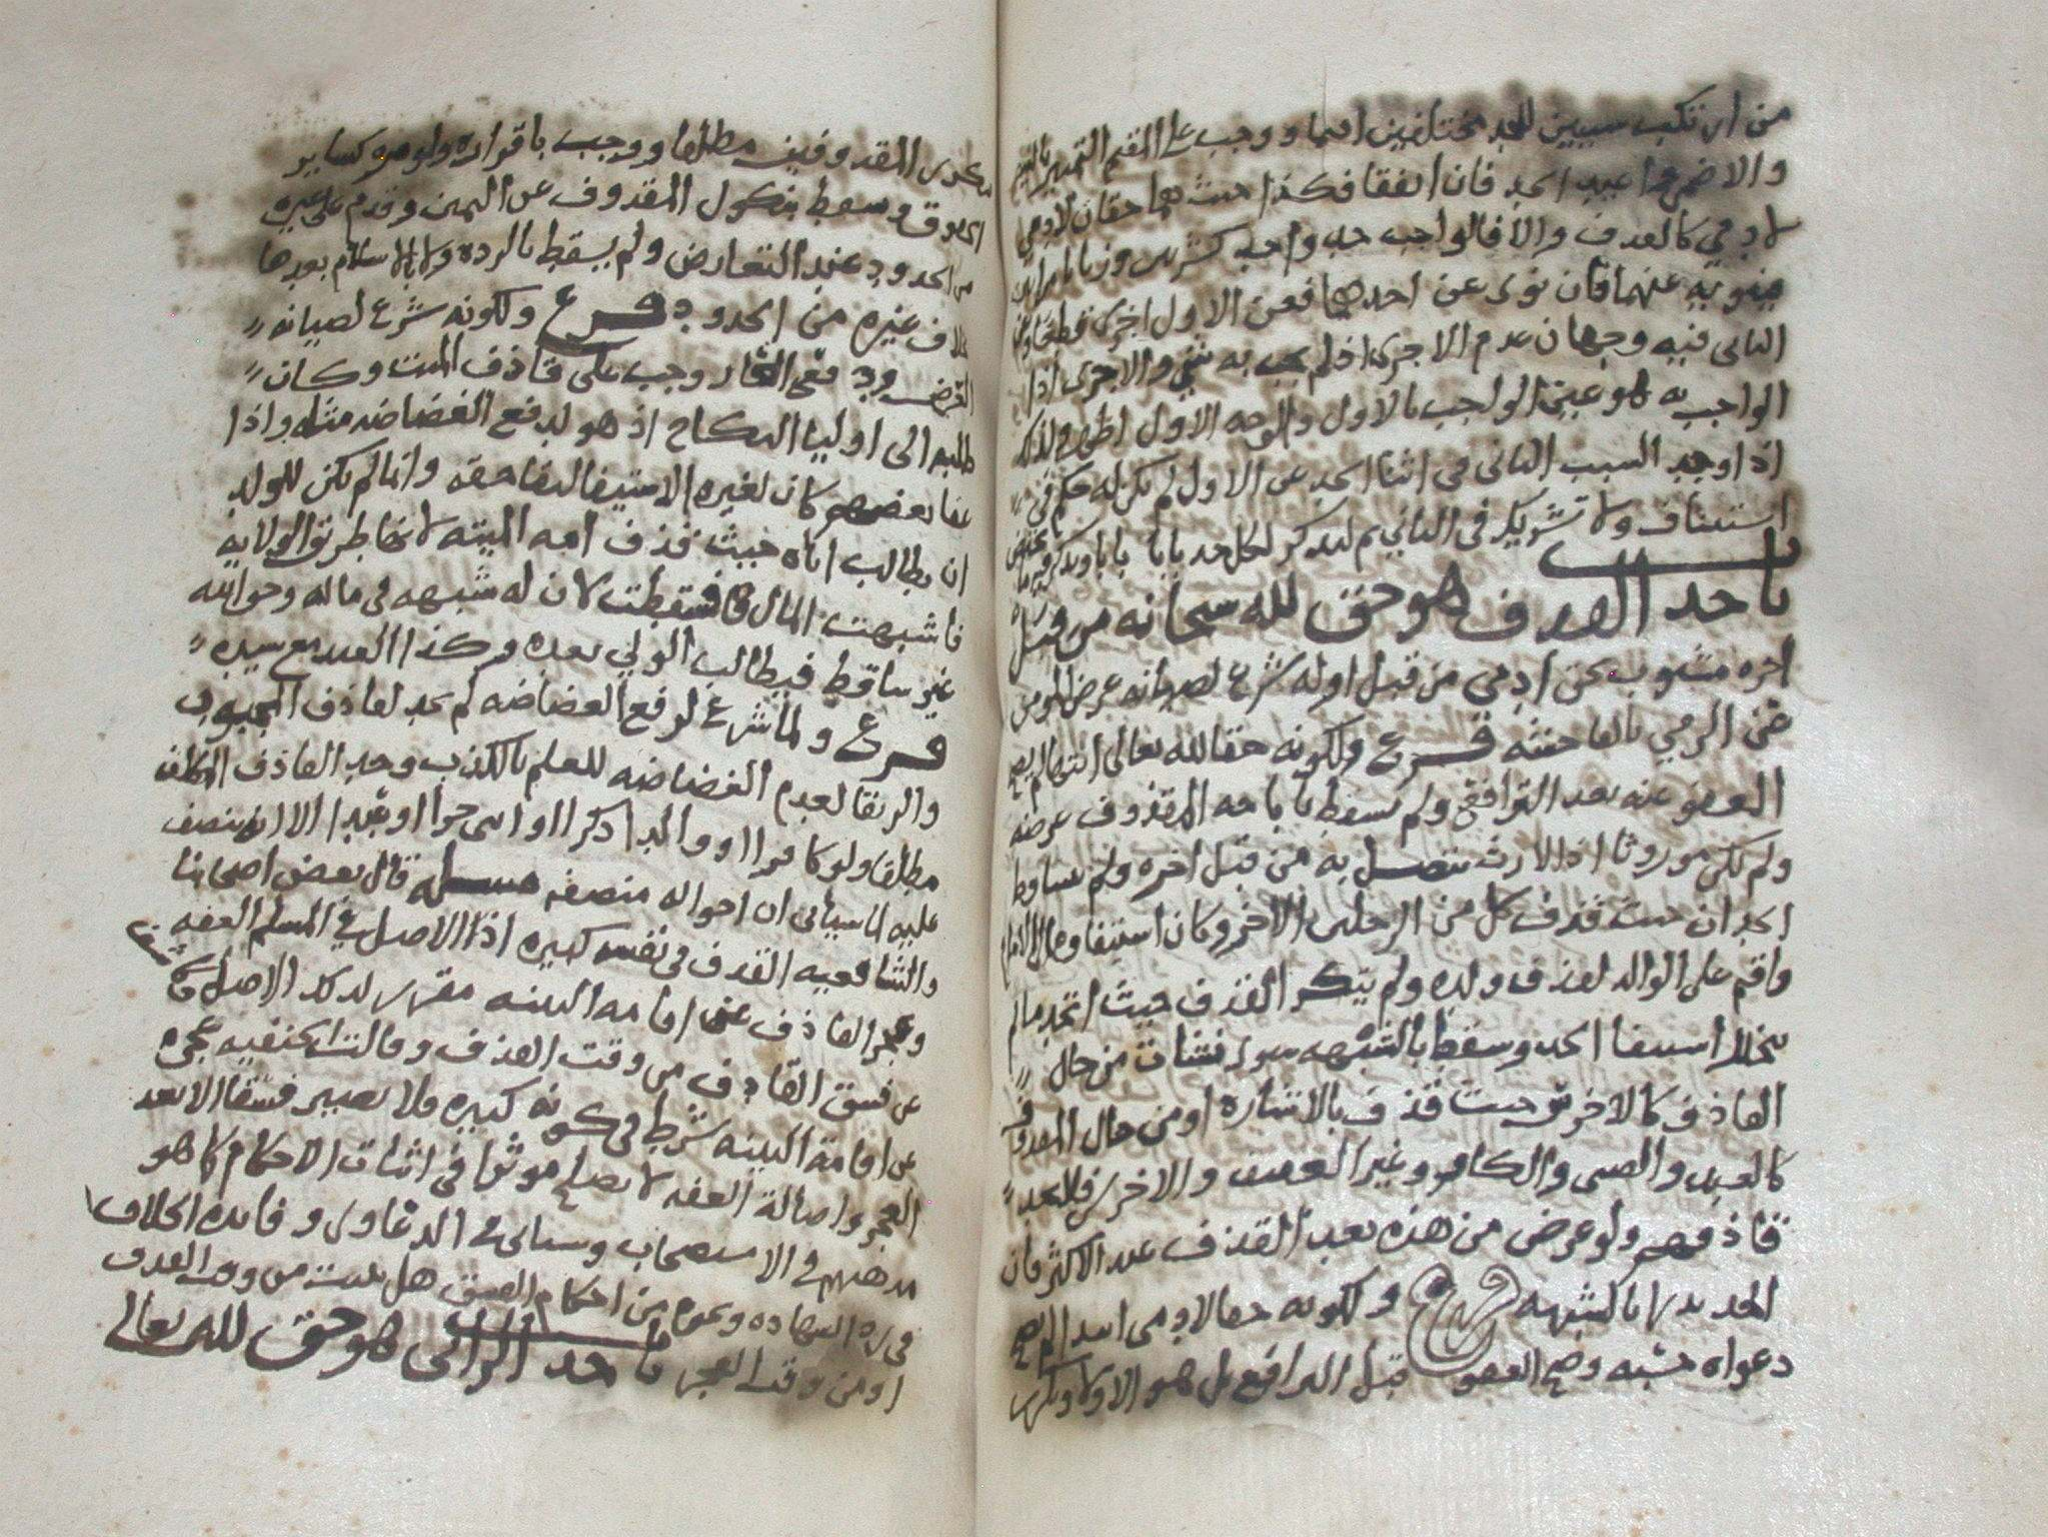 من ارتكب سببين للحد مختلفين اقيما ووجب على المقيم التمييز بالنية
والا ضمن واعيد الحد فان اتفقا فكذا حيث هما حقان لادمي
لادمي كالقذف والا فالواجب حد واحد كشرب وزنا بامراتين
ينويه عنهما فان نوى عن احدهما فعن الاول اجزى قطعا وعن
الثاني فيه وجهان عدم الاجزى اذ لم يجب به شي والاجزى اذا
الواجب به هو عين الواجب بالاول والوجه الاول اظهر ولذلك
اذا وجد السبب الثاني في اثنا الحد عن الاول لم يكن له حكم في
استيناف ولا تشريك في الثاني ثم ليذكر لكل حد بابا بابا ويذكر فيه ما يختص
باب حد القذف هو حق لله سبحانه من قبل
اخره مشوب بحق ادمي من قبل اوله شرع لصيانة عرض المومن
عن الرمي بالفاحشه فرع ولكونه حقا لله تعالى انتها لم يصح
العفو عنه بعد الترافع ولم يسقط باباحه المقذوف عرضه
ولم يكن موروثا اذ الارث يتصل به من قبل اخره ولم يتساقط
الحدان حيث قذف كل من الرجلين الاخر وكان استيفاوه الى الامام
واقيم على الوالد لقذف ولده ولم يتكرر القذف حيث اتحد ما لم
يتخلل استيفا الحد وسقط بالشبهه سوا نشات من حال
القاذف كالاخرس حيث قذف بالاشاره او من حال المقذوف
كالعبد والصبي والكافر وغير العفيف والاخرس فلا يحد
قاذفهم ولو عرض من هذه بعد القذف عند الاكثر فان
الحد يدرا بالشبهه فرع ولكونه حقا لادمي ابتدا لم يصح
دعواه حسبه وصح العفو قبل الترافع بل هو الاولى وتكرر
بتكرر المقذوفين مطلقا ووجب باقراره ولو مره كساير
الحقوق وسقط بنكول المقذوف عن اليمين وقدم على غيره
من الحدود عند التعارض ولم يسقط بالرده ولا بالاسلام بعدها
بخلاف غيره من الحدود فرع ولكونه شرع لصيانه
العرض ودفع العار وجب على قاذف الميت وكان
طلبه الى اوليا النكاح اذ هو لدفع الغضاضه مثله واذا
عفا بعضهم كان لغيره الاستيفا لبقا حقه وانما لم يكن للولد
ان يطالب اباه حيث قذف امه الميته لانها طريق الولايه
فاشبهت المال فسقطت لان له شبهه في ماله وحق الله
غير ساقط فيطالب الولي بعده وكذا العبد مع سيده
فرع ولما شرع لرفع الغضاضه لم يحد لقاذف المجبوب
والرتقا لعدم الغضاضه للعلم بالكذب وحد القاذف المكلف
مطلقا ولو كافرا او والدا ذكرا او انثى حرا او عبدا الا انه ينصف
عليه لما سياتي ان احواله منصفه مسله قال بعض اصحابنا
والشافعيه القذف في نفسه كبيره اذ الاصل في المسلم العفه
وعجز القاذف عن اقامه البينه مقرر لذلك الاصل
عن فسق القاذف من وقت القذف وقالت الحنفيه عجزه
عن اقامة البينه شرط في كونه كبيره فلا يصير فسقا الا بعد
العجز واصالة العفه لا يصلح موثرا في اثبات الاحكام كما هو
مذهبهم في الاستصحاب وسياتي في الدعاوى وفايدة الخلاف
في رد الشهاده ونحوه من احكام الفسق هل يثبت من وقت القذف
او من وقت العجز باب حد الزاني هو حق لله تعالى